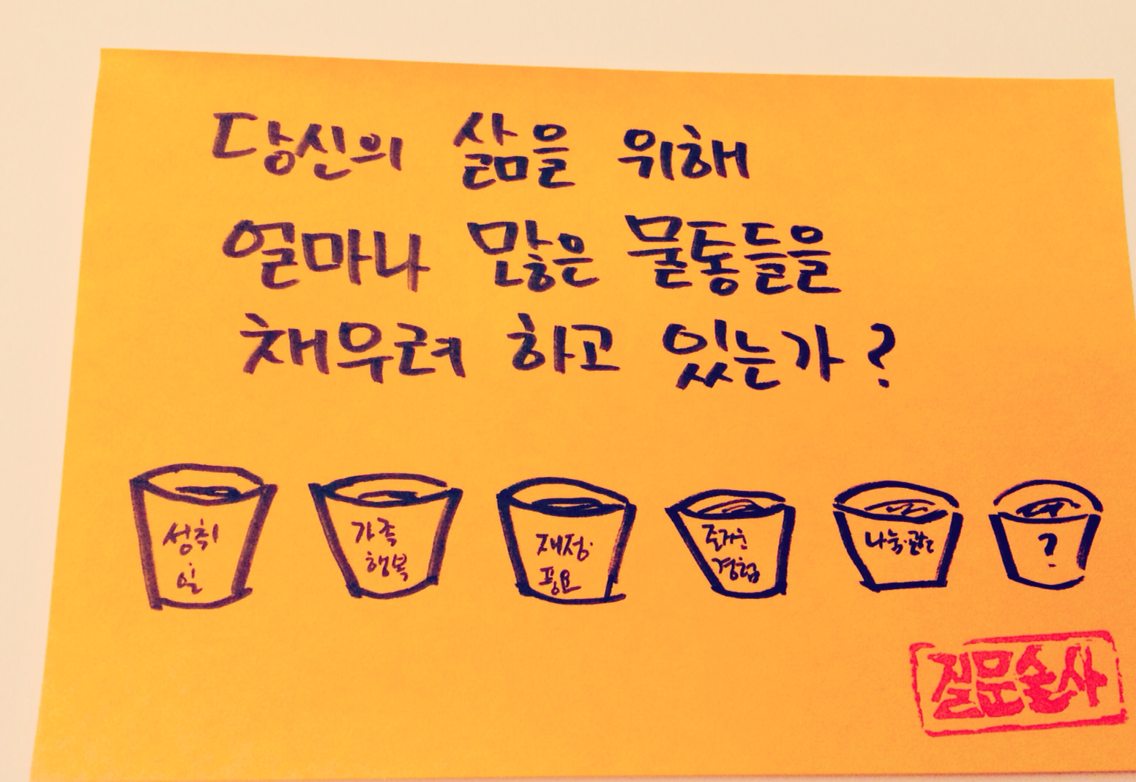 당신의 삶을 위해
얼마나 많은 물통들을
채우려 하고 있는가?
성취
일
가족
행복
재정
풍요
즐거운
경험
나눔
?
질문술사